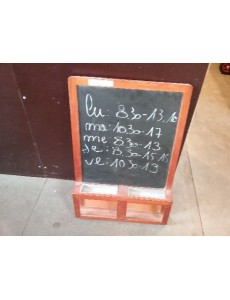 lu: 830-13.10
ma: 1030-17
me: 830-13
je: 8.30-15.15
ve: 1030-13